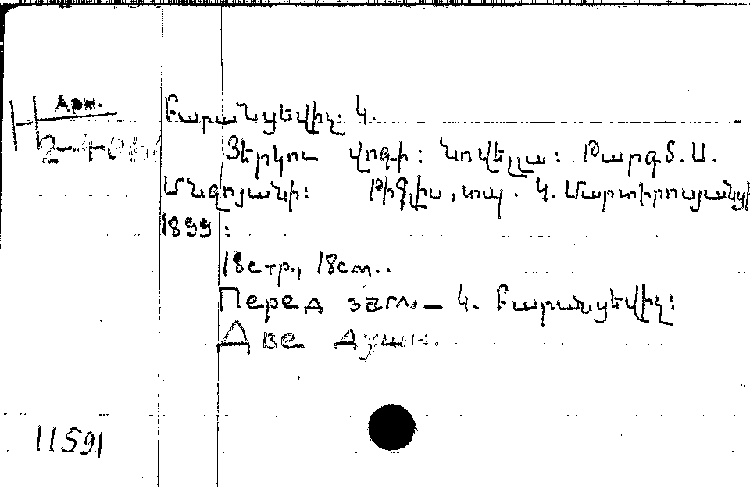 Арм.
Բարանցեվիչ: Կ.
Երկու վոգի: Նովելլա: Թարգմ. Ս.
Մնզոյանի: Թիֆլիս, տպ. Կ. Մարտիրոսյանցի
1899:
18стр., 18см..
Перед загл. — Կ. Բարանցեվիչ:
Две души.
11591